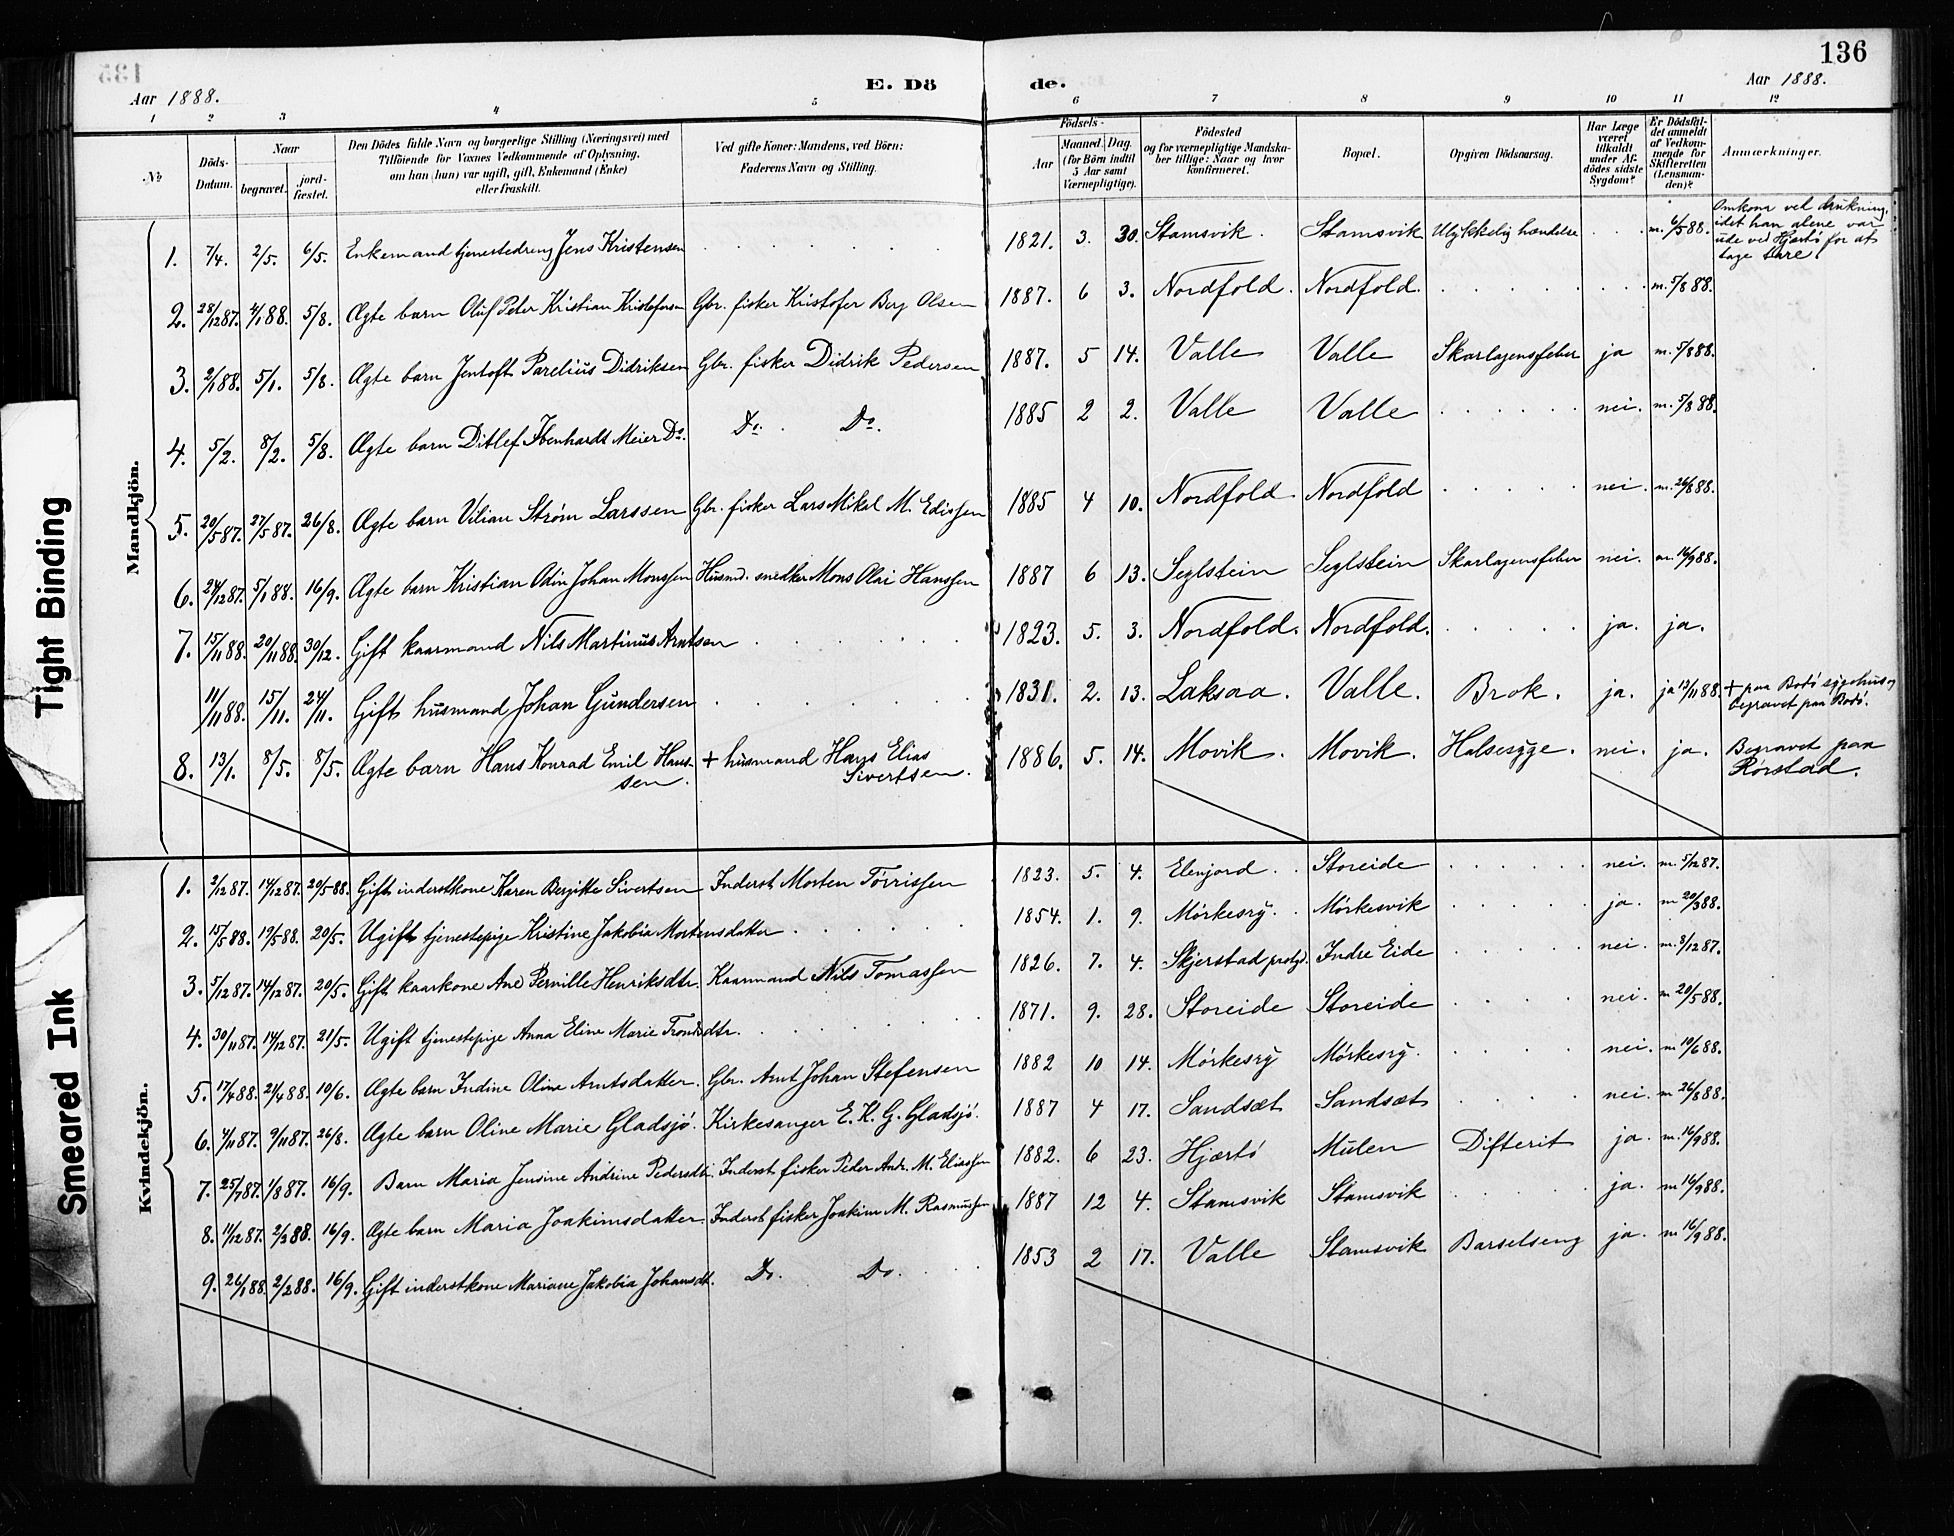 136
Aar 1888.
E. Dö de.
Aar 1888.
1 2 3 4 5 6 7 8 9 10 11 12
No
Döds-Datum.
Naar
begravet.
jord-fæstet.
Den Dödes fulde Navn og borgerlige Stilling (Næringsvei) med
Tilföiende for Voxnes Vedkommende af Oplysning,
om han (hun) var ugift, gift, Enkemand (Enke)
eller fraskilt.
Ved gifte Koner: Mandens, ved Börn:
Faderens Navn og Stilling.
Födsels-
Aar
Maaned. Dag.
(for Börn indtil
5 Aar samt
Værnepligtige).
Födested
og for værnepligtige Mandska-
ber tillige: Naar og hvor
konfirmeret.
Bopæl.
Opgiven Dödsaarsag.
Har Læge
været
tilkaldt
under Af-
dödes sidste
Sygdom?
Er Dödsfal-
det anmeldt
af Vedkom-
mende for
Skifteretten
(Lensman-
den)?
Anmærkninger.
Mandkjön.
1. 7/4. 2/5. 6/5. Enkemand tjenestedreng Jens Kristensen 1821. 3. 30. Stamsvik. Stamsvik Ulykkelig hændelse m. 6/5 88. Omkom ved drukning, idet han alene var ude ved Hjærtö for at tage tare.
2. 28/12 87. 4/1 88. 5/8. Ægte barn Oluf Peter Kristian Kristofersen Gbr. fisker Kristofer Berg Olsen 1887. 6 3. Nordfold. Nordfold. m. 5/8 88.
3. 2/1 88. 5/1. 5/8. Ægte barn Jentoft Parelius Didriksen Gbr. fisker Didrik Pedersen 1887. 5 14. Valle Valle Skarlagensfeber ja m. 5/8 88.
4. 5/2. 8/2. 5/8. Ægte barn Ditlef Ibenhardt Meier Do. Do. Do. 1885 2 2. Valle Valle nei. m. 5/8 88.
5. 20/5 87. 27/5 87. 26/8. Ægte barn Vilian Strøm Larssen Gbr. fisker Lars Mikal M. Edissen 1885 4 10. Nordfold. Nordfold nei. m. 26/8 88.
6. 24/12 87. 5/1 88. 16/9. Ægte barn Kristian Odin Johan Monssen Husmd. snedker Mons Olai Hanssen 1887 6 13. Seglstein Seglstein Skarlagensfeber nei. m. 16/9 88.
7. 15/11 88. 20/11 88. 30/12. Gift kaarmand Nils Martinus Arntsen 1823. 5. 3. Nordfold. Nordfold. ja. ja.
11/11 88. 15/11. 24/11. Gift husmand Johan Gundersen 1831. 2. 13. Laksaa. Valle. Brok. ja. ja 13/11 88. + paa Bodö sygehus og begravet paa Bodö.
8. 13/1. 8/5. 8/5. Ægte barn Hans Konrad Emil Hanssen. + husmand Hans Elias Sivertsen. 1886. 5. 14. Movik. Movik. Halsesyge. nei. ja. Begravet paa Rörstad.
Kvindekjön.
1. 2/12 87. 14/12 87. 20/5 88. Gift inderstkone Karen Bergitte Sivertsen Inderst Morten Törrissen 1823. 5. 4. Elvejord. Storeide nei. m. 5/12 87.
2. 15/5 88. 19/5 88. 20/5. Ugift tjenestepige Kristine Jakobia Mortensdatter 1854. 1. 9. Mörkesvg. Mörkesvik ja. m 20/3 88.
3. 5/12 87. 14/12 87. 20/5. Gift kaarkone Ane Pernille Henriksdtr. Kaarmand Nils Tomassen 1826. 7. 4. Skjerstad prstgj. Indre Eide nei. m. 8/12 87.
4. 30/11 87. 14/12 87. 21/5. Ugift tjenestepige Anna Eline Marie Trondsdtr. 1871. 9. 28. Storeide Storeide nei. m 20/5 88.
5. 17/4 88. 24/4 88. 10/6. Ægte barn Indine Oline Arntsdatter. Gbr. Arnt Johan Stefensen 1882 10 14. Mörkesvg Mörkesvg. nei. m 10/6 88.
6. 4/11 87. 9/11 87. 26/8. Ægte barn Oline Marie Gladsjö. Kirkesanger E. K. G. Gladsjö. 1887 4 17. Sandsæt Sandsæt nei. m 26/8 88.
7. 25/7 87. 1/8 87. 16/9. Barn Maria Jensine Andrine Pedersdtr. Inderst fisker Peder Andr. M. Eliassen 1882. 6 23. Hjærtö Mulen Difterit ja. m. 16/9 88.
8. 11/12 87. 2/2 88. 16/9. Ægte barn Maria Joakimsdatter. Inderst fisker Joakim M. Rasmussen 1887 12 4. Stamsvik Stamsvik ja. m 16/9 88.
9. 26/1 88. 2/2 88. 16/9. Gift inderstkone Mariane Jakobia Johansdt. Do. Do. 1853 2 17. Valle Stamsvik Barselseng ja. m 16/9 88.
Tight Binding
Smeared Ink